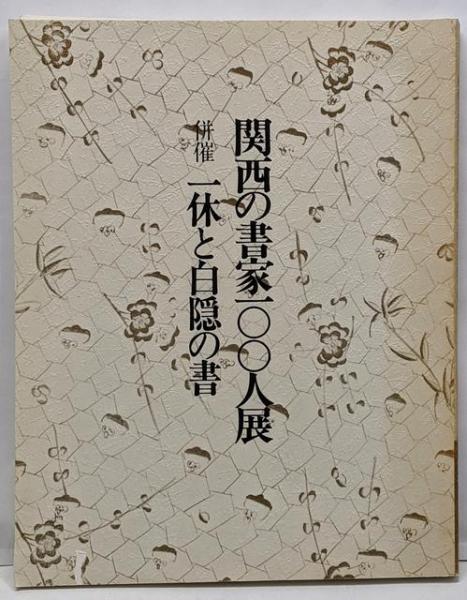 関西の書家一〇〇人展
併催 一休と白隠の書